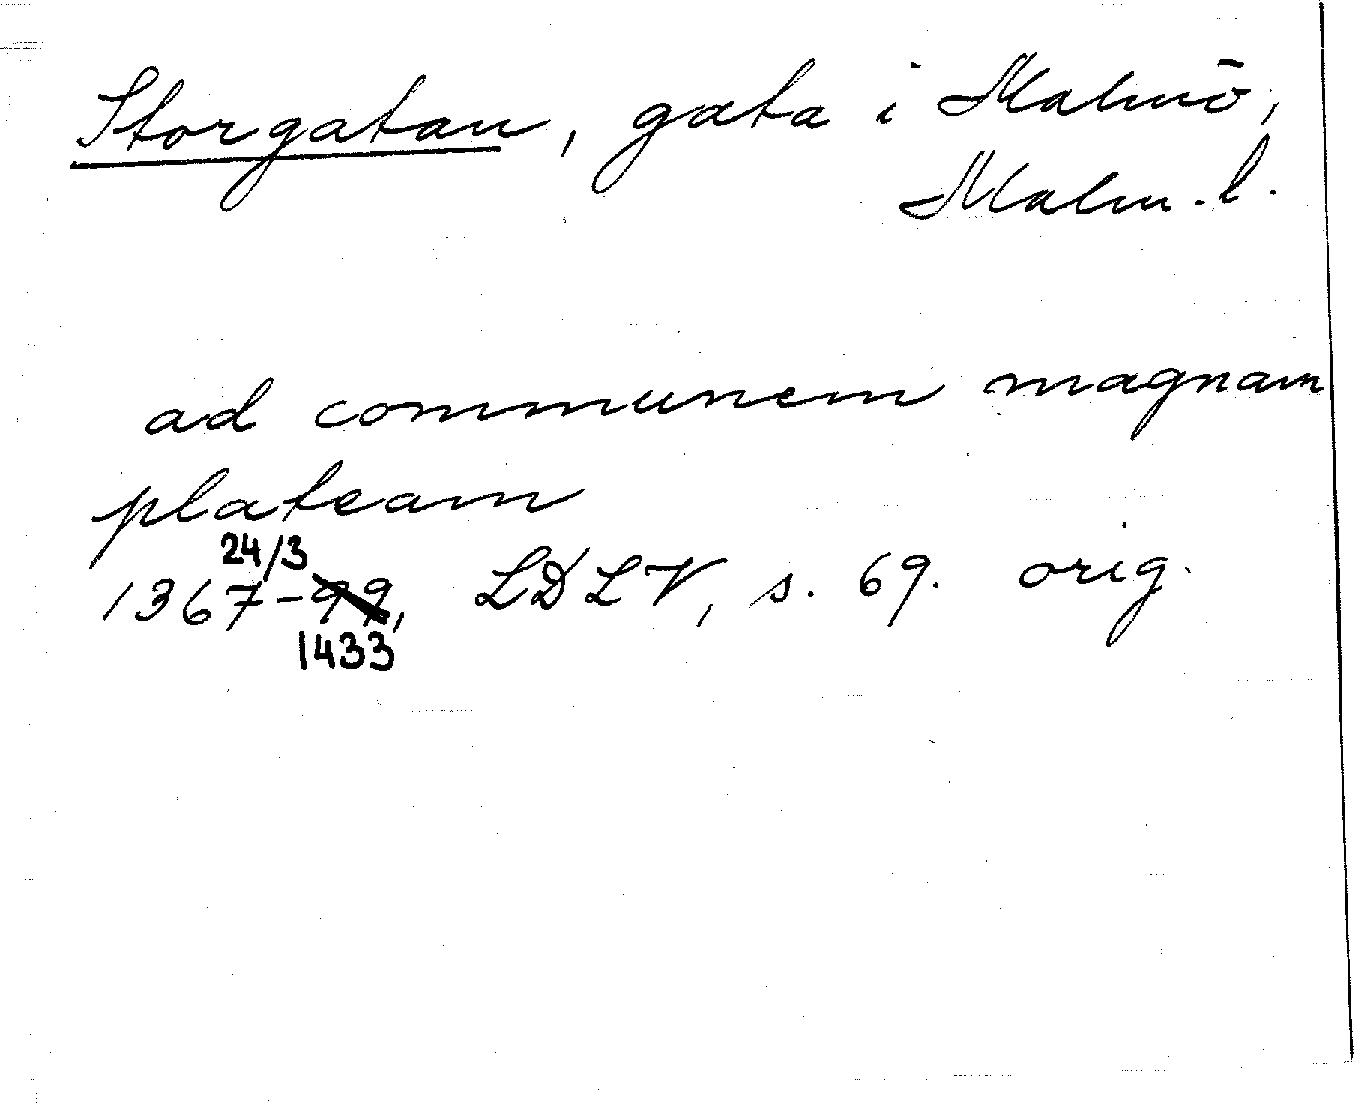 Storgatan, gata i Malmö,
Malm. l.
ad communem magnam
plateam
24/3
1367-99, LDLV, s. 69. orig.
1433